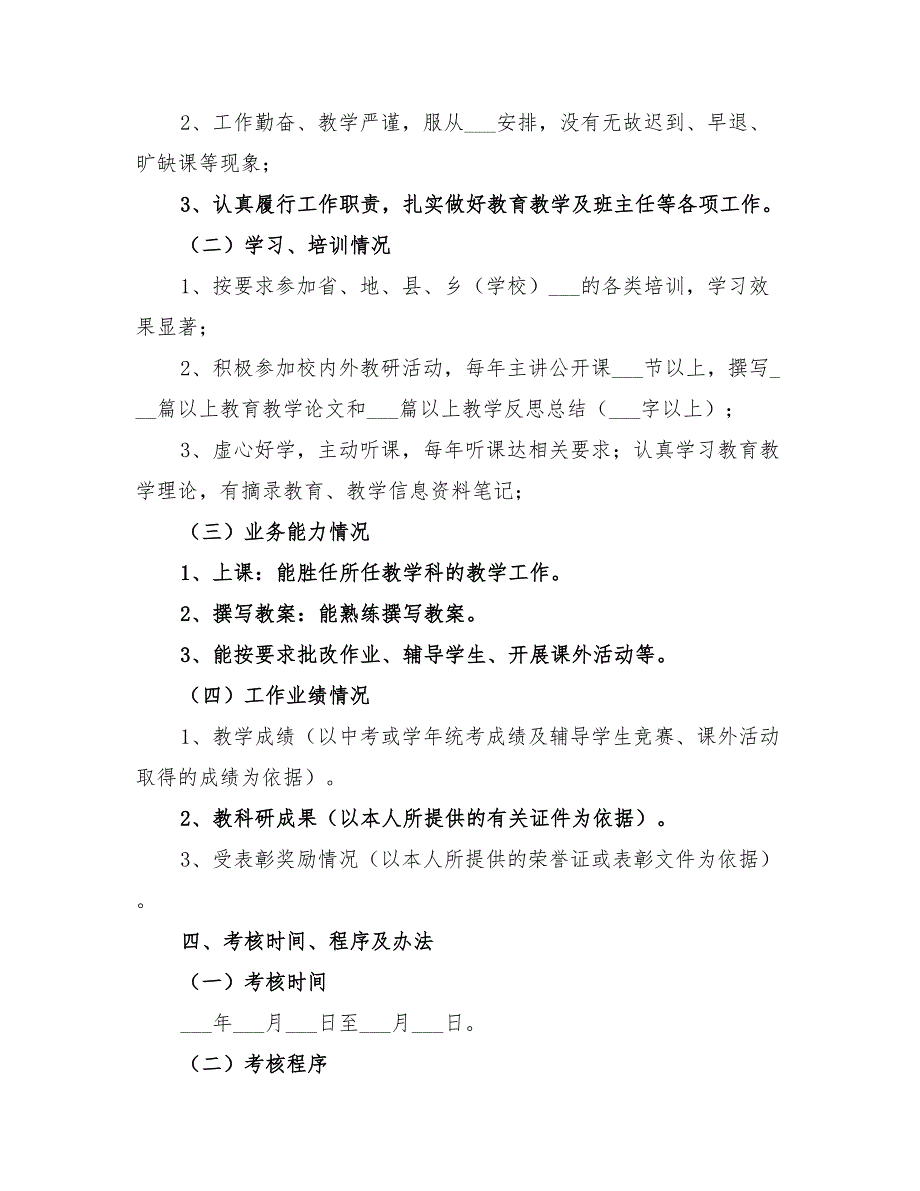 2、工作勤奋、教学严谨，服从___安排，没有无故迟到、早退、
旷缺课等现象；
3、认真履行工作职责，扎实做好教育教学及班主任等各项工作。
（二）学习、培训情况
1、按要求参加省、地、县、乡（学校）___的各类培训，学习效
果显著；
2、积极参加校内外教研活动，每年主讲公开课___节以上，撰写_
__篇以上教育教学论文和___篇以上教学反思总结（___字以上）；
3、虚心好学，主动听课，每年听课达相关要求；认真学习教育教
学理论，有摘录教育、教学信息资料笔记；
（三）业务能力情况
1、上课：能胜任所任教学科的教学工作。
2、撰写教案：能熟练撰写教案。
3、能按要求批改作业、辅导学生、开展课外活动等。
（四）工作业绩情况
1、教学成绩（以中考或学年统考成绩及辅导学生竞赛、课外活动
取得的成绩为依据）。
2、教科研成果（以本人所提供的有关证件为依据）。
3、受表彰奖励情况（以本人所提供的荣誉证或表彰文件为依据）
。
四、考核时间、程序及办法
（一）考核时间
___年___月___日至___月___日。
（二）考核程序